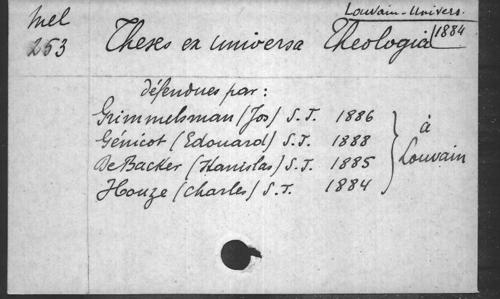 Louvain-Univers.
Mel 253
Theses ex universa Theologia 1884
défendues par:
Grimmelsman (Jos) S.J. 1886
Génicot (Edouard) S.J. 1888
De Backer (Stanislas) S.J. 1885
Houze (Charles) S.J. 1884
à Louvain